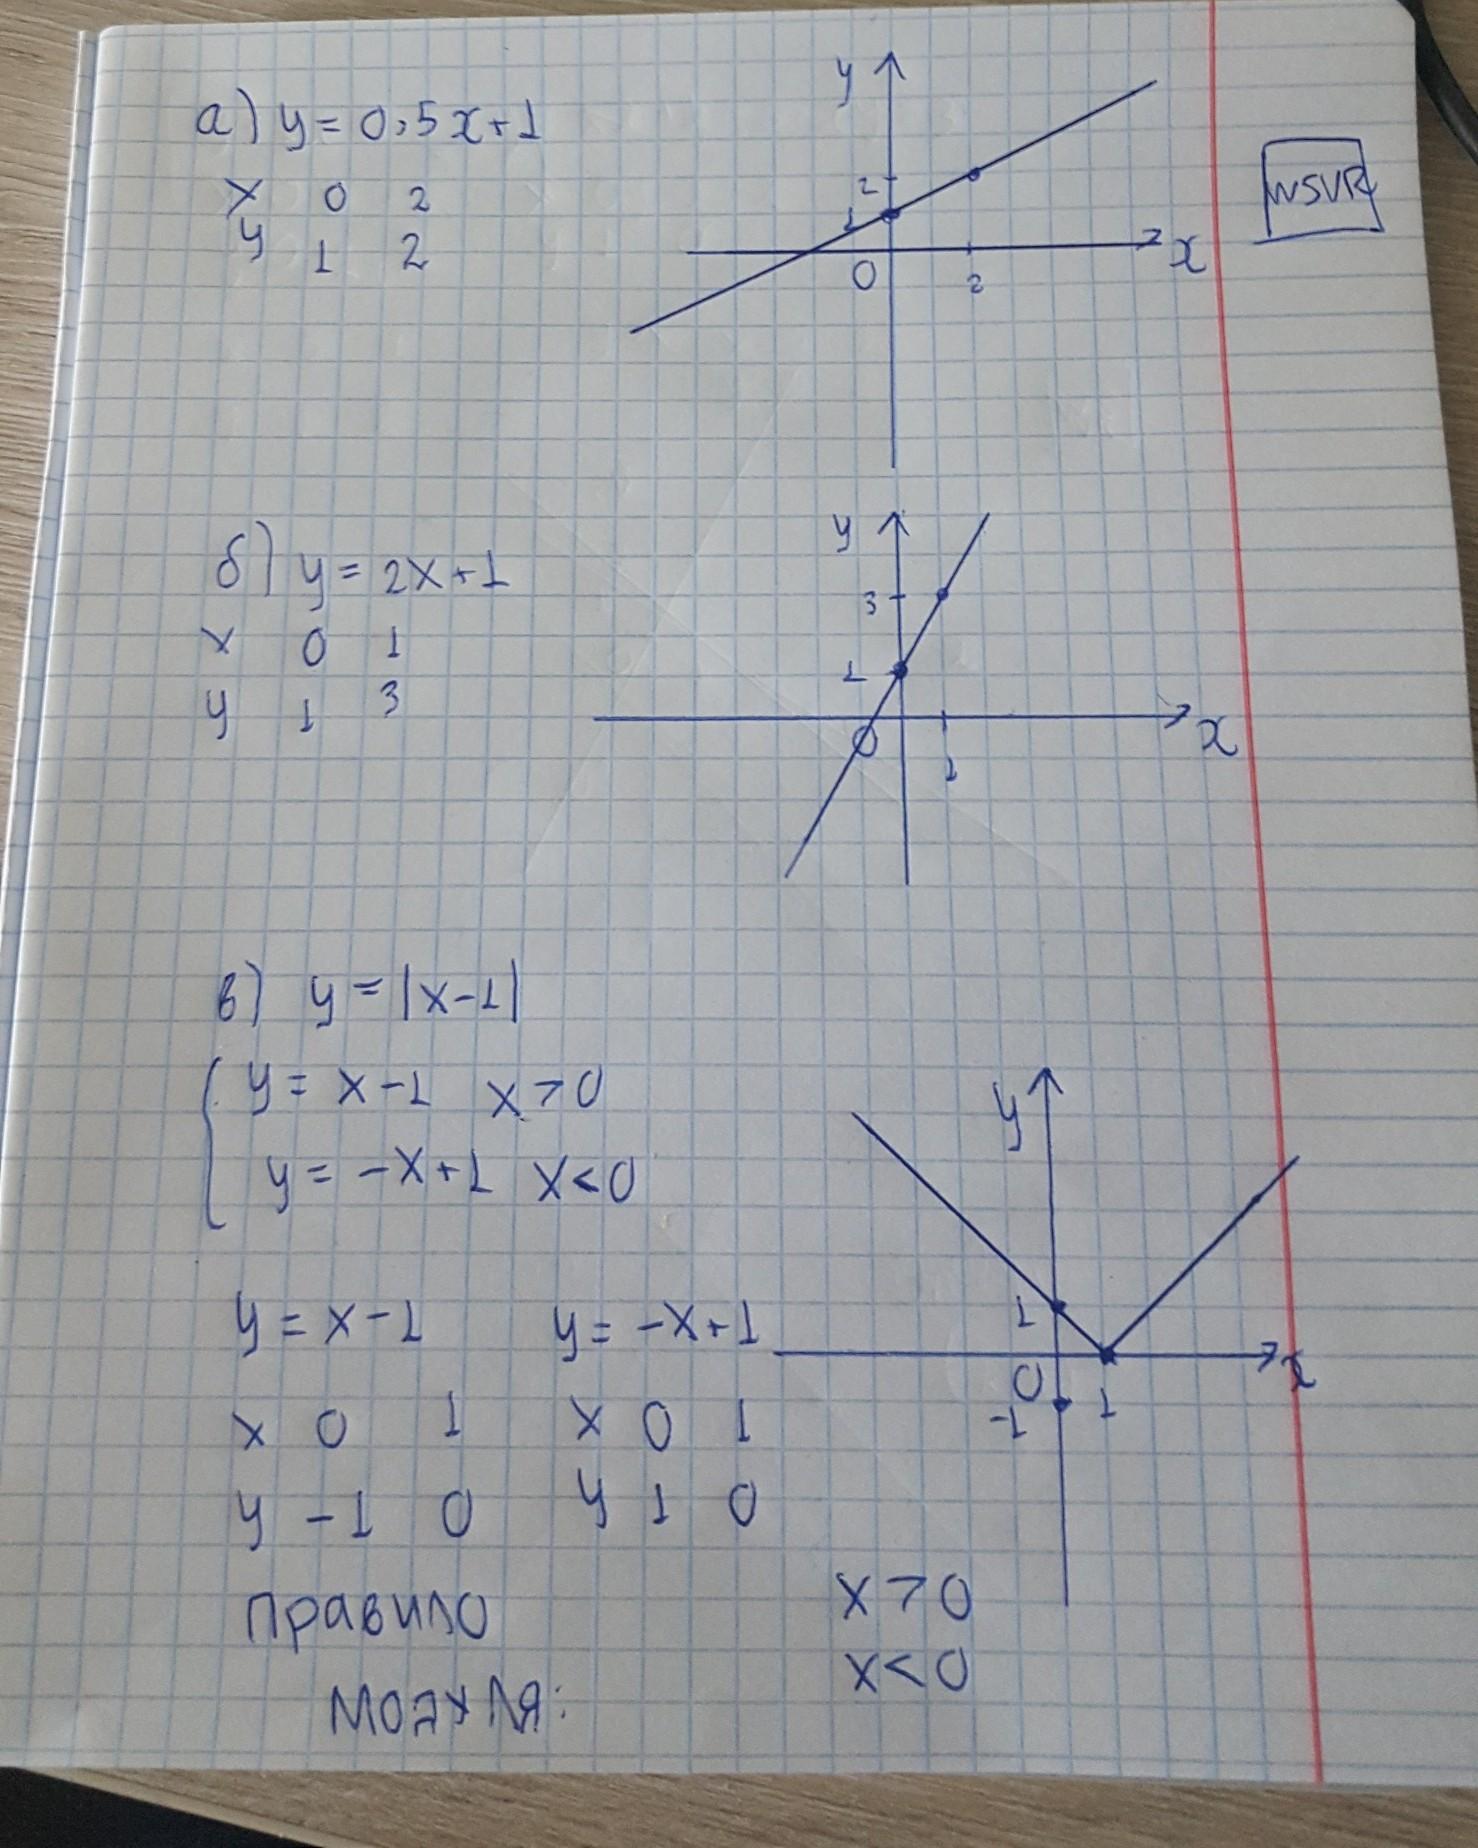 а) y = 0,5x+1
x 0 2
y 1 2
y
2
1
0
2
x
WSVR
б) y = 2x+1
x 0 1
y 1 3
y
3
1
0
1
x
в) y = |x-1|
y = x-1 x>0
y = -x+1 x<0
y = x-1 y = -x+1
x 0 1 x 0 1
y -1 0 y 1 0
y
1
0
-1
1
x
правило x>0
модуля: x<0